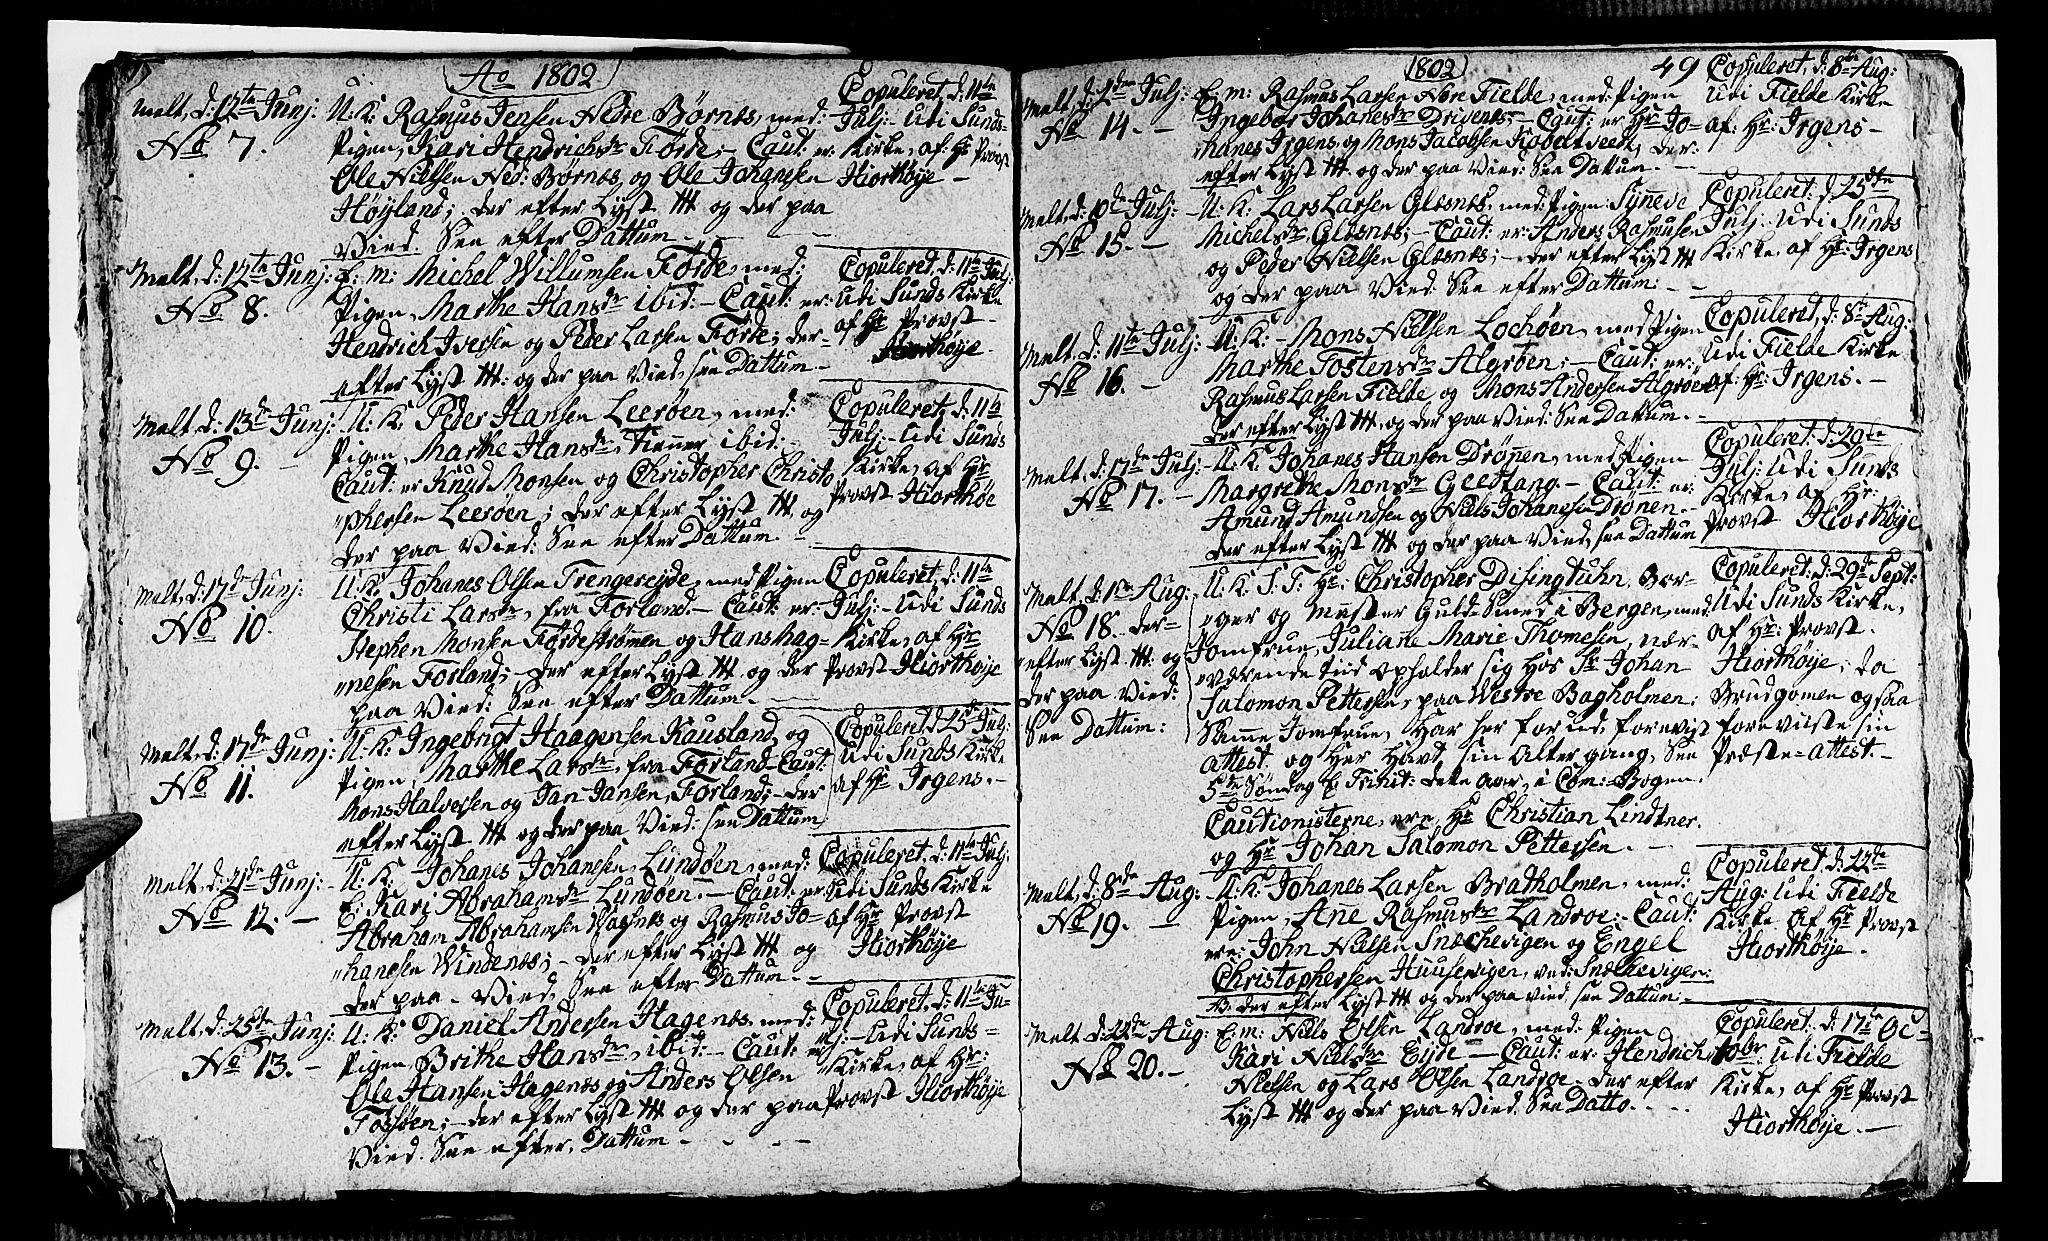 Ao 1802
Melt, d: 12te Junj:
No 7.
U. K. Rasmus Jensen Nedre Børnes, med:
Pigen, Kari Hendrichsdr Førde; - Caut: er:
Ole Nielsen Ned: Børnes og Ole Johansen
Høyland; der efter Lyst ttt og der paa
Vied. See efter Dattum. -
Copuleret, d: 11te
Julj: Udi Sunds
Kirke, af Hr Provst
Hiorthøije -
Melt, d: 12te Junj:
No 8.
E. m: Michel Willumsen Førde, med:
Pigen, Marthe Hansdr ibid: - Caut: er:
Hendrich Iversen og Peder Larsen Førde; der-
efter Lyst ttt: og der paa Vied, see Dattum -
Copuleret, d: 11te Julj:
Udi Sunds Kirke
af Hr Provst
Hiorthøije.
Melt, d: 13de Junj:
No 9. -
U. K. Peder Hansen Leerøen, med:
Pigen, Marthe Hansdr, tienner ibid: -
Caut: er Knud Monsen og Christopher Christo
"phersen Leerøen; der efter Lyst ttt. og
der paa Vied: See efter Dattum. -
Copuleret, d: 11te
Julj: - Udi Sunds
Kirke, af Hr
Provst Hiorthøe
Melt, d: 17de Junj:
No 10.
U. K. Johanes Olsen Trengereijde, med Pigen
Christi Larsdr, fra Forland. - Caut: er:
Stephen Monsen Førdestrømen og Hans Hag-
"nesen Forland; - der efter Lyst ttt. og der
paa Vied: See efter Dattum. -
Copuleret, d: 11te
Julj: - Udi Sunds
Kirke, af Hr
Provst Hiorthøije
Melt, d: 17de Junj:
No 11.
U. K: Ingebrigt Haagensen Kausland, og
Pigen, Marthe Larsdr, fra Forland - Caut:
Mons Halvorsen og Jan Jansen, Forland; - der
efter Lyst ttt og der paa Vied: see Dattum
Copuleret, d 25de Julj:
Udi Sunds Kirke
af Hr Irgens. -
Melt, d: 21de Junj: -
No 12. -
U: K: Johanes Johansen Lundøen, med:
E: Kari Abrahamsdr Lundøen. - Caut: er
Abraham Abrahamsen Vagsnes og Rasmus Jo=
"hansen Windenes; - der efter Lyst ttt og
der paa - Vied, See efter Dattum. -
Copuleret, d: 11te Julj:
Udi Sunds Kirke
af Hr Provst
Hiorthøije
Melt, d: 25de Junj:
No 13. -
U. K: Daniel Andersen Hagenes, med:
Pigen Brithe Hansdr, ibid: - Caut: er
Ole Hansen Hagenes og Anders Olsen
Fossøen; - der efter Lyst ttt og der paa
Vied. See efter, Dattum -
Copuleret, d: 11te Ju-
lj: - Udi Sunds=
Kirke, af Hr:
Provst Hiorthøije
1802
49
Melt, d: 2den Julj:
No 14. -
E: m: Rasmus Larsen Nore Fielde, med: Pigen
Ingebor Johanesdr Drivenes; - Caut: er Hr Jo-
hanes Irgens, og Mons Jacobsen Kobeltveedt, der:
efter Lyst ttt. og der paa Vied: See Dattum. -
Copuleret, d: 8de Aug:
Udi Fielde Kirke
af: Hr: Irgens -
Melt, d: 10de Julj: -
No 15. -
U: K: Lars Larsen Glesnes, med: Pigen Synneve
Michelsdr, Glesnes; - Caut: er: Anders Rasmusen
og Peder Nielsen Glesnes; - der efter Lyst ttt
og der paa Vied: See efter Dattum: -
Copuleret. d: 25de
Julj: Udi Sunds
Kirke, af Hr: Irgens
Melt, d: 11te Julj:
No 16. -
U: K: - Mons Nielsen Lochøen, med Pigen
Marthe Tostensdr Algrøen; - Caut: er:
Rasmus Larsen Fielde og Mons Andersen Algrøen
der efter Lyst ttt, og der paa Vied: See Dattum. -
Copuleret, d: 8de Aug:
Udi Fielde Kirke
af: Hr: Irgens. -
Melt, d: 17de Julj: -
No 17. -
U: K: Johanes Hansen Drønen, med Pigen
Margrethe Monsdr Geedtang. - Caut: er:
Amund Amundsen og Niels Johanesen Drønen. -
der efter Lyst ttt og der paa Vied, see Dattum
Copuleret: d: 29de
Julj: Udi Sunds
Kirke, af Hr:
Provst Hiorthøije
Melt, d: 1te Aug:
No 18. der-
efter Lyst ttt: og
der paa Vied:
See Dattum:
U: K. S. T. Hr: Christopher Disingtuhn, Bor-
"ger og Mester Guld-Smed i Bergen, med
Jomfrue, Juliane Marie Thomesen, nær-
"værende tiid opholder sig hos Sr Johan
Salomon Pettersen, paa Westre Bagholmen;
Samme Jomfrue, har her forud, forevist
attest. og her havt sin Alter gang, See
5te Søndag E: Trinit: dette aar, i Com:-Bogen,
Cautionisterne, ere, Hr Christian Lindtner.
og Hr Johan Salomon Pettersen. -
Copuleret: d: 29de Sept:
Udi Sunds Kirke,
af Hr: Provst.
Hiorthøije; da
Brudgomen ogsaa
foreviiste sin
Præste=attest. -
Melt, d: 8de Aug:
No 19. -
U: K: Johanes Larsen Bratholmen, med:
Pigen, Ane Rasmusdr Landroe: - Caut:
ere: John Nielsen Snechevigen og Engel
Christophersen Huusevigen, ved: Snechevigen:
NB. der efter Lyst ttt og der paa vied, see Dattum -
Copuleret, d: 22de
Aug: Udi Fielde
Kirke af Hr Provst
Hiorthøije.
Melt d: 22de Aug:
No 20. -
E: m: Niels Olsen Landroe, med: Pigen
Kari Nielsdr Eyde - Caut: er: Hendrich
Nielsen og Lars Olsen Landroe - der efter
Lyst ttt og der paa Vied. See Datto. - -
Copuleret, d: 17de Oc-
tobr: Udi Fielde
Kirke, af Hr Provst
Hiorthøije. -